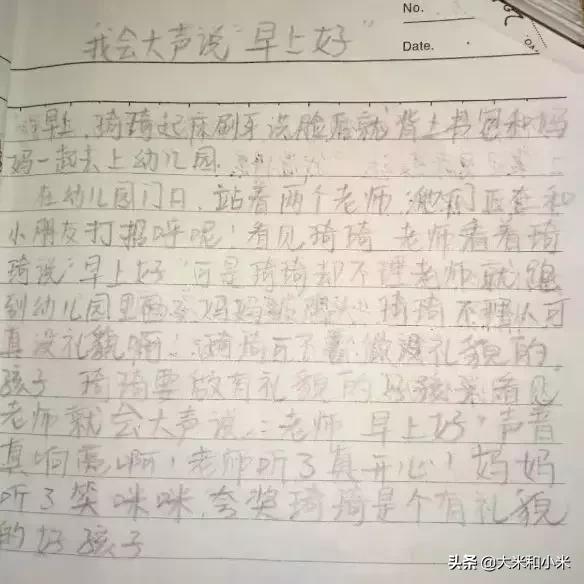 No.
Date.
我会大声说“早上好”
早上，琦琦起床刷牙洗脸后就背上书包和妈
妈一起去上幼儿园.
在幼儿园门口，站着两个老师，她们正在和
小朋友打招呼呢！看见琦琦 老师看着琦
琦说“早上好”可是琦琦却不理老师就跑
到幼儿园里 妈妈 琦琦 不理人可
真没礼貌啊！琦琦可不 做没礼貌的
孩子 琦琦要做有礼貌的 看见
老师就会大声说：老师 早上好”声音
真响亮啊！老师听了真开心！妈妈
听了笑咪咪，夸奖琦琦是个有礼貌
的好孩子
头条 @大米和小米